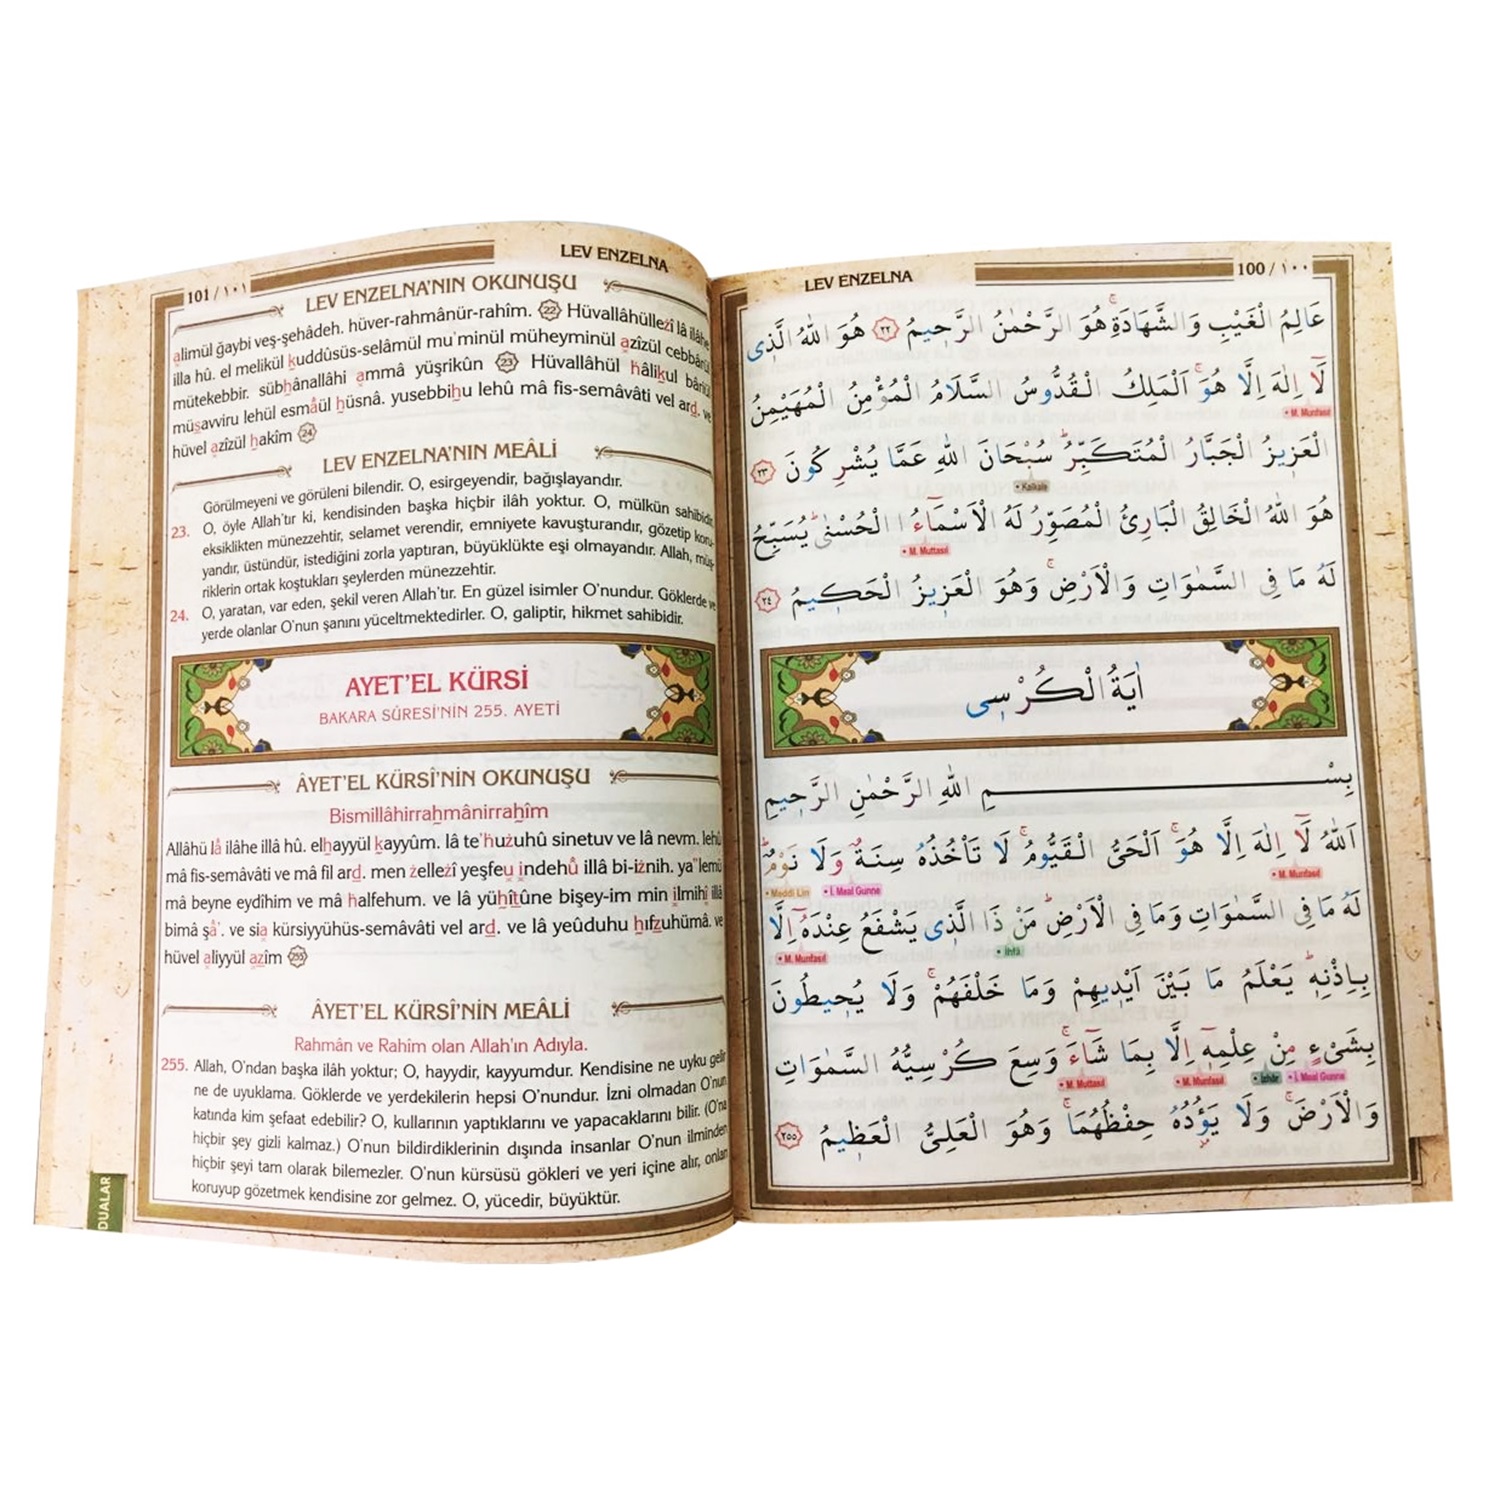 LEV ENZELNA
101 / ١٠١
LEV ENZELNA'NIN OKUNUŞU
alimül ğaybi veş-şehâdeh. hüver-rahmânür-rahîm. 22 Hüvallâhüllezî lâ ilâhe
illa hû. el melikül kuddûsüs-selâmül mu'minül müheyminül azîzül cebbârül
mütekebbir. sübhânallâhi ammâ yüşrikûn 23 Hüvallâhül hâlikul bâriül
müsavviru lehül esmâül hüsnâ. yusebbihu lehû mâ fis-semâvâti vel ard. ve
hüvel azîzül hakîm 24
LEV ENZELNA'NIN MEÂLİ
Görülmeyeni ve görüleni bilendir. O, esirgeyendir, bağışlayandır.
23. O, öyle Allah'tır ki, kendisinden başka hiçbir ilâh yoktur. O, mülkün sahibidir,
eksiklikten münezzehtir, selamet verendir, emniyete kavuşturandır, gözetip koru-
yandır, üstündür, istediğini zorla yaptıran, büyüklükte eşi olmayandır. Allah, müş-
riklerin ortak koştukları şeylerden münezzehtir.
24. O, yaratan, var eden, şekil veren Allah'tır. En güzel isimler O'nundur. Göklerde ve
yerde olanlar O'nun şanını yüceltmektedirler. O, galiptir, hikmet sahibidir.
AYET'EL KÜRSİ
BAKARA SÛRESİ'NİN 255. AYETİ
ÂYET'EL KÜRSÎ'NİN OKUNUŞU
Bismillâhirrahmânirrahîm
Allâhü lâ ilâhe illâ hû. elhayyül kayyûm. lâ te'huzuhû sinetuv ve lâ nevm. lehû
mâ fis-semâvâti ve mâ fil ard. men zellezî yeşfeu indehû illâ bi-iznih. ya'lemü
mâ beyne eydîhim ve mâ halfehum. ve lâ yühîtûne bişey-im min ilmihî illâ
bimâ şâ'. ve sia kürsiyyühüs-semâvâti vel ard. ve lâ yeûduhu hıfzuhümâ. ve
hüvel aliyyül azîm 255
ÂYET'EL KÜRSÎ'NİN MEÂLİ
Rahmân ve Rahîm olan Allah'ın Adıyla.
255. Allah, O'ndan başka ilâh yoktur; O, hayydir, kayyumdur. Kendisine ne uyku gelir
ne de uyuklama. Göklerde ve yerdekilerin hepsi O'nundur. İzni olmadan O'nun
katında kim şefaat edebilir? O, kullarının yaptıklarını ve yapacaklarını bilir. (O'na
hiçbir şey gizli kalmaz.) O'nun bildirdiklerinin dışında insanlar O'nun ilminden
hiçbir şeyi tam olarak bilemezler. O'nun kürsüsü gökleri ve yeri içine alır, onları
koruyup gözetmek kendisine zor gelmez. O, yücedir, büyüktür.
DUALAR
LEV ENZELNA
100 / ١٠٠
عَالِمُ الْغَيْبِ وَالشَّهَادَةِۚ هُوَ الرَّحْمٰنُ الرَّحٖيمُ ٢٢ هُوَ اللّٰهُ الَّذٖى
لَٓا اِلٰهَ اِلَّا هُوَۚ اَلْمَلِكُ الْقُدُّوسُ السَّلَامُ الْمُؤْمِنُ الْمُهَيْمِنُ
• M. Munfasıl
الْعَزٖيزُ الْجَبَّارُ الْمُتَكَبِّرُؕ سُبْحَانَ اللّٰهِ عَمَّا يُشْرِكُونَ ٢٣
• Kalkale
هُوَ اللّٰهُ الْخَالِقُ الْبَارِئُ الْمُصَوِّرُ لَهُ الْاَسْمَٓاءُ الْحُسْنٰىؕ يُسَبِّحُ
• M. Muttasıl
لَهُ مَا فِى السَّمٰوَاتِ وَالْاَرْضِۚ وَهُوَ الْعَزٖيزُ الْحَكٖيمُ ٢٤
اٰيَةُ الْكُرْسٖى
بِسْمِ اللّٰهِ الرَّحْمٰنِ الرَّحٖيمِ
اَللّٰهُ لَٓا اِلٰهَ اِلَّا هُوَۚ اَلْحَىُّ الْقَيُّومُۚ لَا تَاْخُذُهُ سِنَةٌ وَلَا نَوْمٌؕ
• M. Munfasıl • İ. Meal Gunne • Meddi Lin
لَهُ مَا فِى السَّمٰوَاتِ وَمَا فِى الْاَرْضِؕ مَنْ ذَا الَّذٖى يَشْفَعُ عِنْدَهُٓ اِلَّا
• İhfâ • M. Munfasıl
بِاِذْنِهٖؕ يَعْلَمُ مَا بَيْنَ اَيْدٖيهِمْ وَمَا خَلْفَهُمْۚ وَلَا يُحٖيطُونَ
بِشَىْءٍ مِنْ عِلْمِهٖٓ اِلَّا بِمَا شَٓاءَۚ وَسِعَ كُرْسِيُّهُ السَّمٰوَاتِ
• İ. Meal Gunne • İzhâr • M. Munfasıl • M. Muttasıl
وَالْاَرْضَۚ وَلَا يَؤُدُهُ حِفْظُهُمَاۚ وَهُوَ الْعَلِىُّ الْعَظٖيمُ ٢٥٥